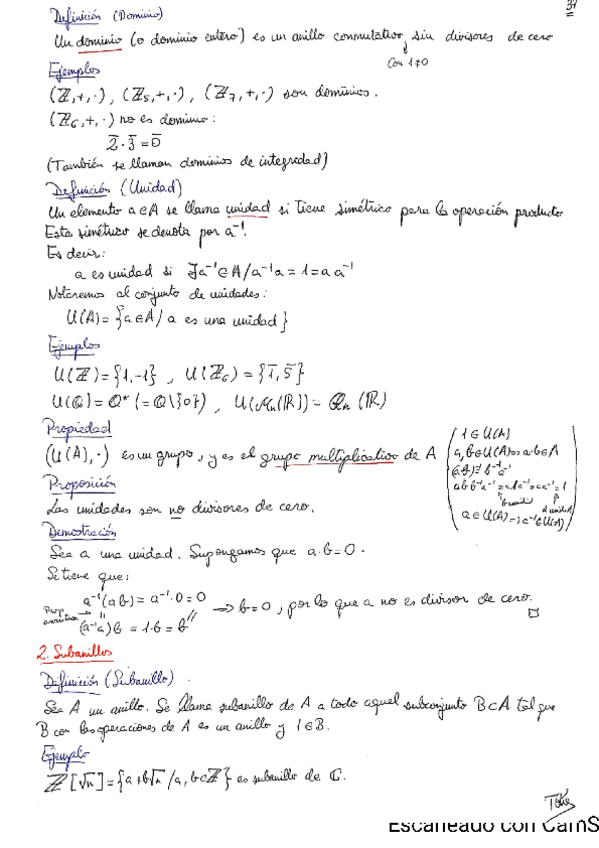 37
Definición (Dominio)
Un dominio (o dominio entero) es un anillo conmutativo sin divisores de cero
Con 1≠0
Ejemplos
(ℤ,+,·), (ℤ₅,+,·), (ℤ₇,+,·) son dominios.
(ℤ₆,+,·) no es dominio:
2̅·3̅=0̅
(También se llaman dominios de integredad)
Definición (Unidad)
Un elemento a∈A se llama unidad si tiene simétrico para la operación producto
Este simétrico se denota por a⁻¹.
Es decir:
a es unidad si ∃a⁻¹∈A/a⁻¹a=1=aa⁻¹
Notaremos al conjunto de unidades:
U(A)={a∈A/a es una unidad}
Ejemplos
U(ℤ)={1,-1}, U(ℤ₆)={1̅,5̅}
U(ℚ)=ℚ*(=ℚ\{0}), U(Mn(ℝ))=Gln(ℝ)
Propiedad
(U(A),·) es un grupo, y es el grupo multiplicativo de A
1∈U(A)
a,b∈U(A)=>a·b∈A
(ab)⁻¹=b⁻¹a⁻¹
abb⁻¹a⁻¹=a1a⁻¹=aa⁻¹=1
b unidad a unidad
a∈U(A)=>a⁻¹∈U(A)
Proposición
Las unidades son no divisores de cero.
Demostración
Sea a una unidad. Supongamos que a·b=0.
Se tiene que:
a⁻¹(ab)=a⁻¹·0=0
Prop.
(a⁻¹a)b=1·b=b
→b=0, por lo que a no es divisor de cero.
2. Subanillos
Definición (Subanillo)
Sea A un anillo. Se llama subanillo de A a todo aquel subconjunto B⊂A tal que
B con las operaciones de A es un anillo y 1∈B.
Ejemplo
ℤ[√n]={a+b√n/a,b∈ℤ} es subanillo de ℂ.
Escaneado con CamS